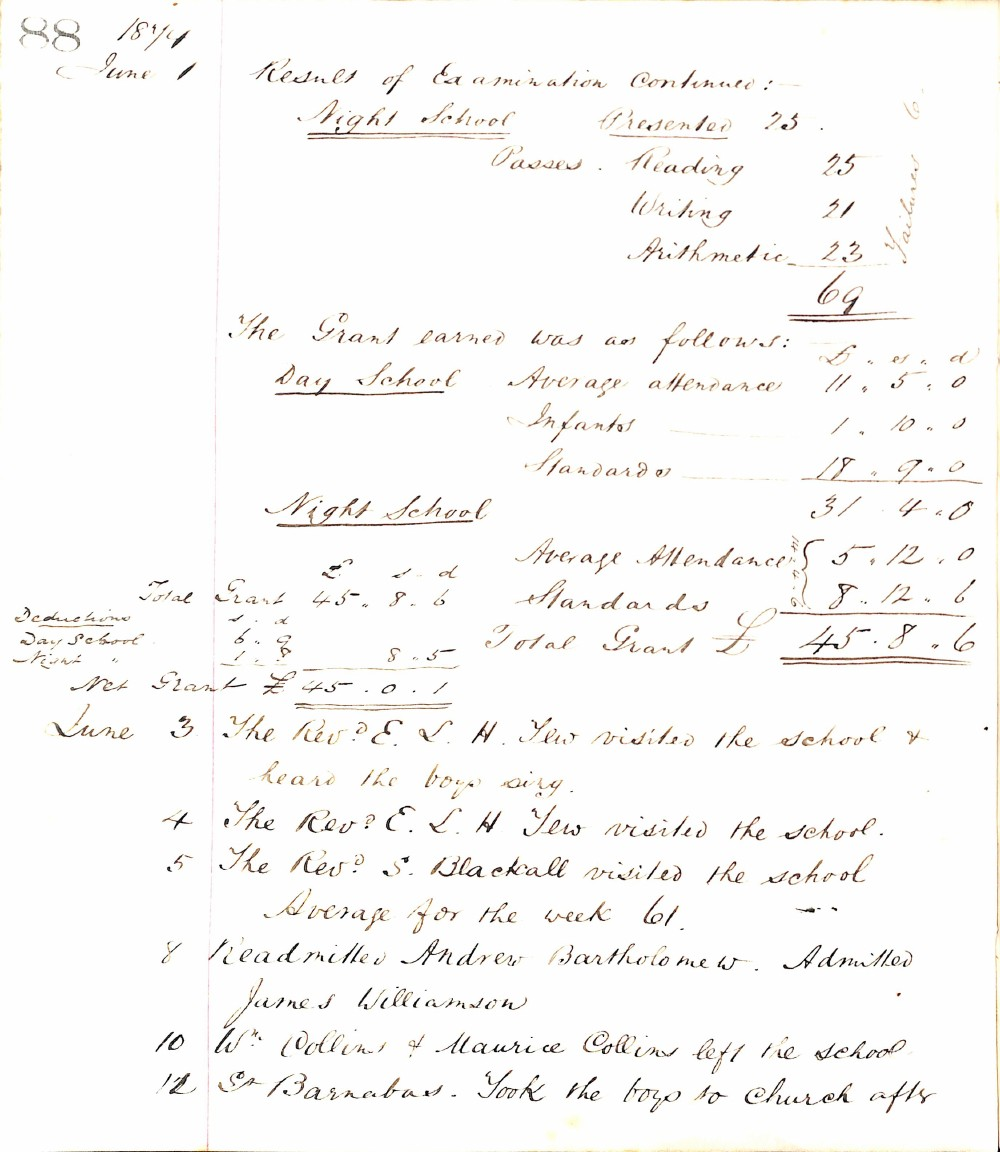 88 1874
June 1 Result of Examination continued:—
Night School Presented 25.
Passes. Reading 25
Writing 21
Arithmetic 23
69
Failures 6.
The Grant earned was as follows:—
£ „ s „ d
Day School Average attendance 11 „ 5 „ 0
Infants 1 „ 10 „ 0
Standards 18 „ 9 „ 0
31 „ 4 „ 0
Night School
Average Attendance 5 „ 12 „ 0
Standards 8 „ 12 „ 6
14 „ 4 „ 6
Total Grant £ 45 „ 8 „ 6
£ s. d
Total Grant 45 „ 8 „ 6
Deductions s. d
Day School 6 „ 9
Night „ 1 „ 8 8 „ 5
Net Grant £ 45 . 0 . 1
June 3 The Revd E. L. H. Tew visited the school &
heard the boys sing.
4 The Revd E. L. H Tew visited the school.
5 The Revd S. Blackall visited the school
Average for the week 61.
8 Readmitted Andrew Bartholomew. Admitted
James Williamson
10 Wm Collins & Maurice Collins left the school
12 St Barnabas. Took the boys to church after